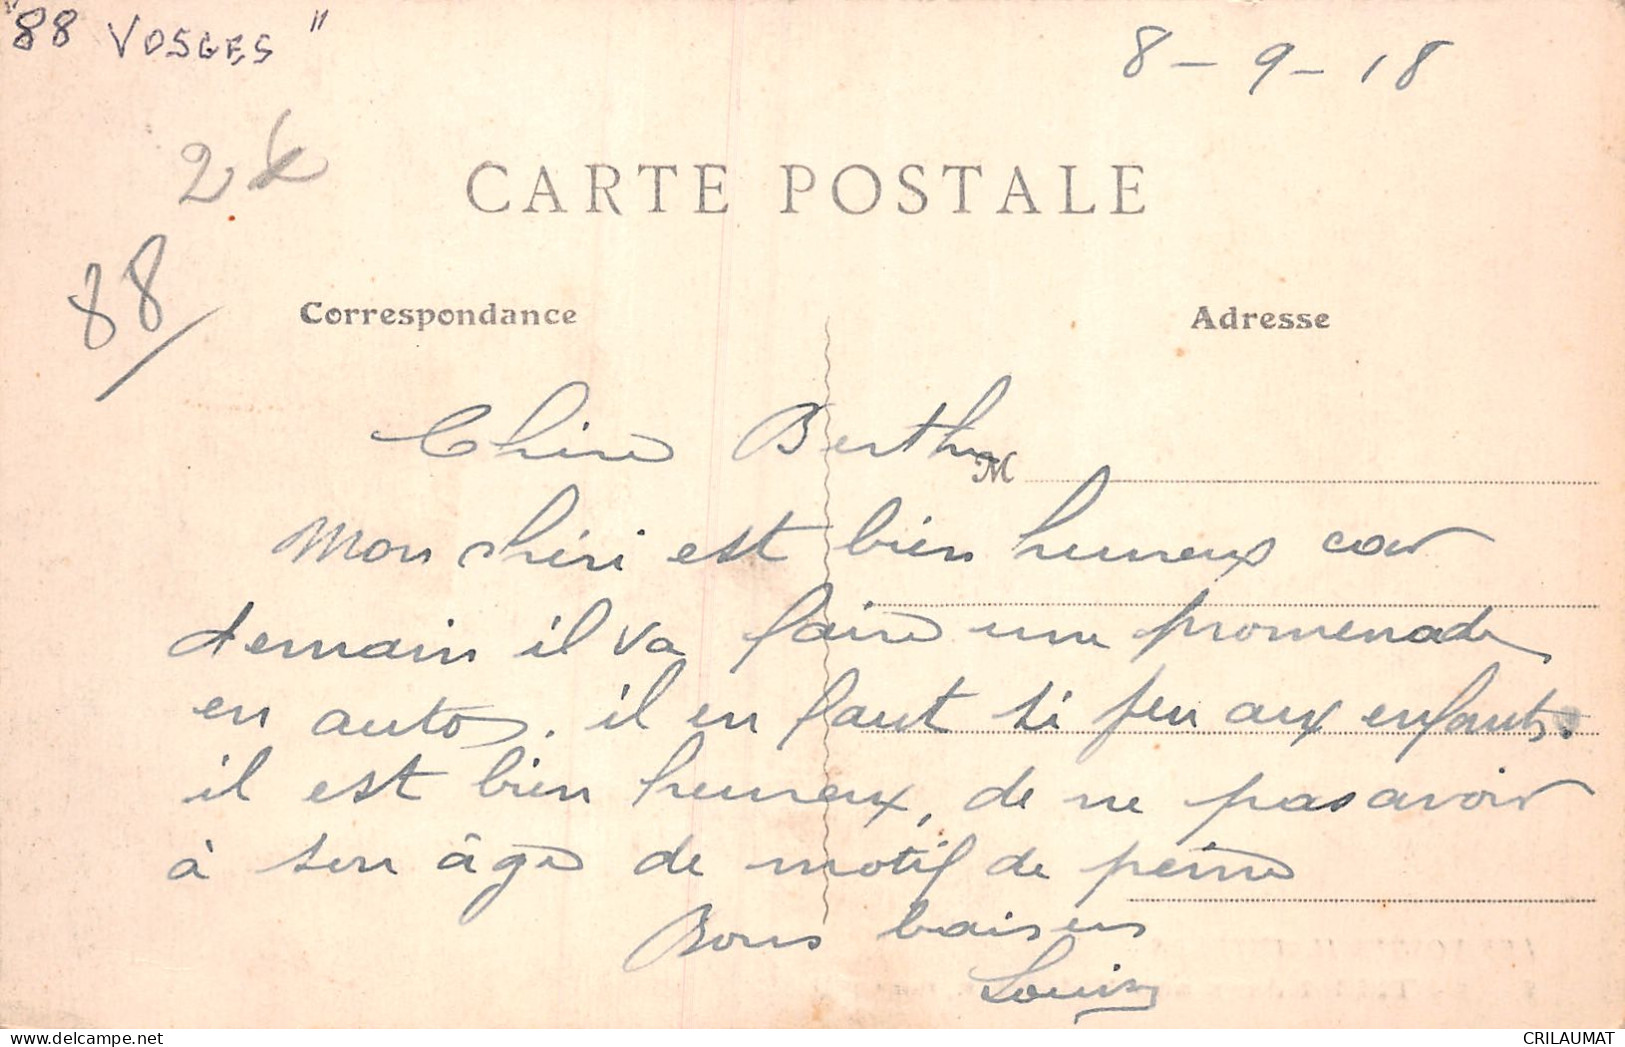 "88 VOSGES"
8-9-18
2
CARTE POSTALE
88/
Correspondance
Adresse
Chère Berthe
M
Mon chéri est bien heureux car
demain il va faire une promenade
en auto. il en faut si peu aux enfants.
il est bien heureux, de ne pas avoir
à son âge de motif de peine
Bons baisers
Louise
CRILAUMAT